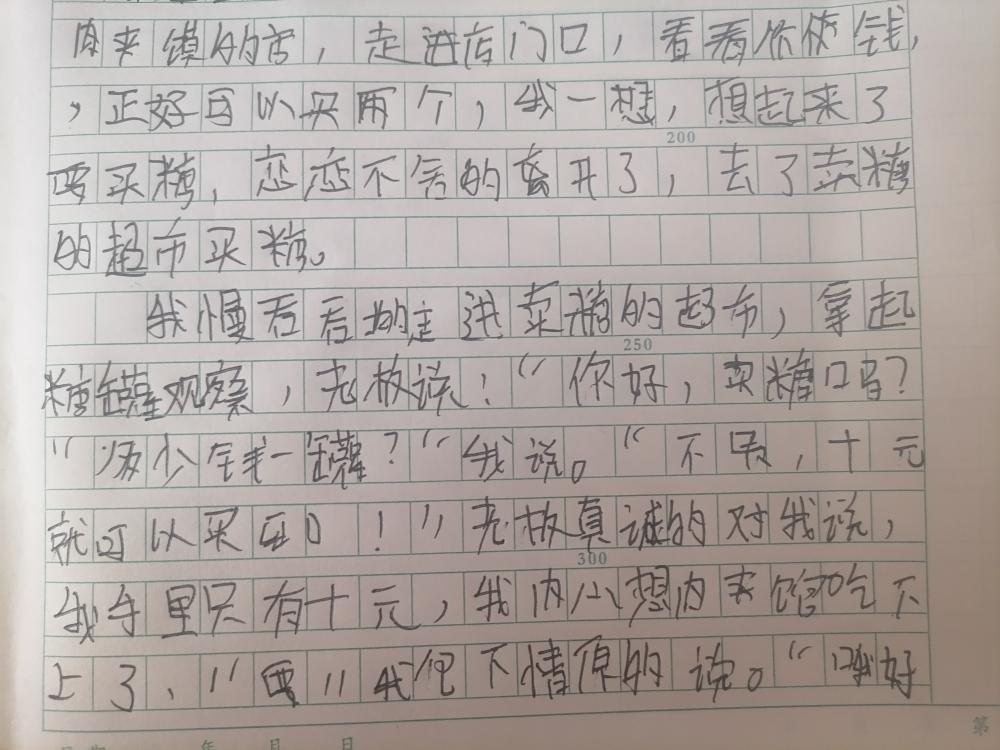 肉夹馍的店，走进店门口，看看价钱，
，正好可以买两个，我一想，想起来了
200
要买糖，恋恋不舍的离开了，去了卖糖
的超市买糖。
我慢吞吞地走进卖糖的超市，拿起
250
糖罐观察，老板说：“你好，买糖吗？
“多少钱一罐？“我说。“不贵，十元
就可以买！”老板真诚的对我说，
300
我手里只有十元，我内心想肉夹馍吃不
上了，“要”我不情愿的说。“哦好
第
年 月 日